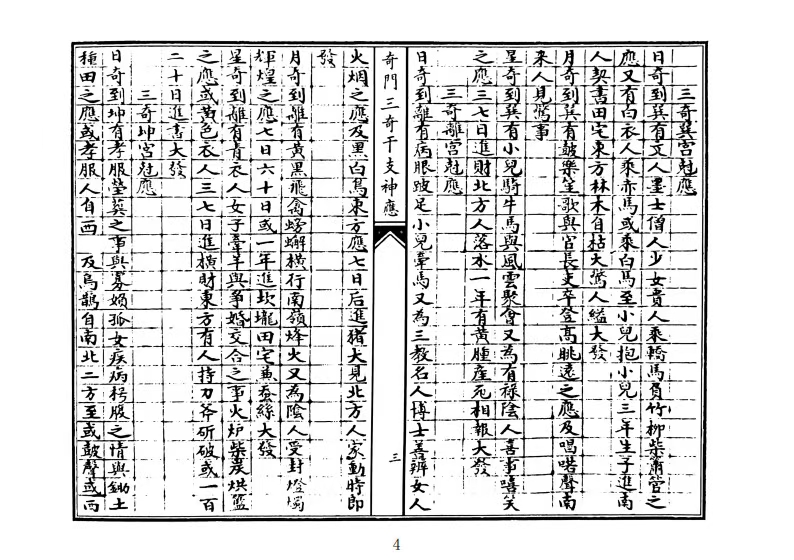 三奇巽宮尅應
日奇到巽有文人墨士僧人少女貴人乘轎馬負竹柳柴簫管之
應又有白衣人乘赤馬或乘白馬至小兒抱小兒三年生子進南
人契書田宅東方林木自枯犬驚人縊大發
月奇到巽有鼓樂笙歌與官長吏卒登高眺遠之應及唱喏聲南
来人見驚事
星奇到巽有小兒騎牛馬與風雲聚會又為有祿陰人喜事嘻笑
之應三七日進財北方人落水一年有黃腫産死相報大發
三奇離宮尅應
日奇到離有病服跛足小兒牽馬又為三教名人博士善辨女人
奇門三奇干支神應
三
火烟之應及黑白鳥東方應七日后進猪犬見北方人家動時即
發
月奇到離有黃黑飛禽螃蠏橫行南嶺烽火又為陰人受封燈燭
輝煌之應七日六十日或一年進坎壠田宅兼蚕絲大發
星奇到離有青衣人女子牽羊與爭婚交合之事火炉柴炭烘籃
之應或黃色衣人三七日進橫財東方有人持刀斧斫破或一百
二十日進書大發
三奇坤宮尅應
日奇到坤有孝服塋葬之事與寡婦孤女疾病袀服之情與鋤土
種田之應或孝服人自西 及烏鵲自南北二方至或鼓聲或西
4